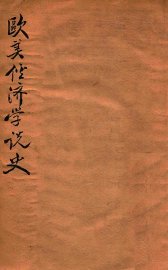 欧美经济学说史